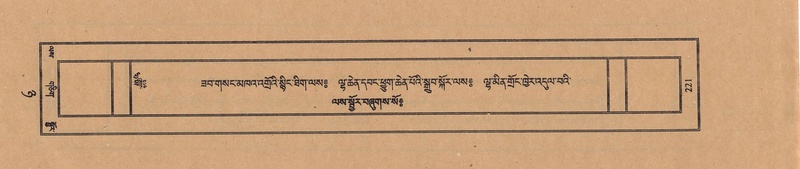 ཟབ་གསང་མཁའ་འགྲོའི་སྙིང་ཐིག་ལས༔ ལྷ་ཆེན་དབང་ཕྱུག་ཆེན་པོའི་སྒྲུབ་སྐོར་ལས༔ ལྷ་མིན་གྲོང་ཁྱེར་འདུལ་བའི
ལས་སྦྱོར་བཞུགས་སོ༔
221